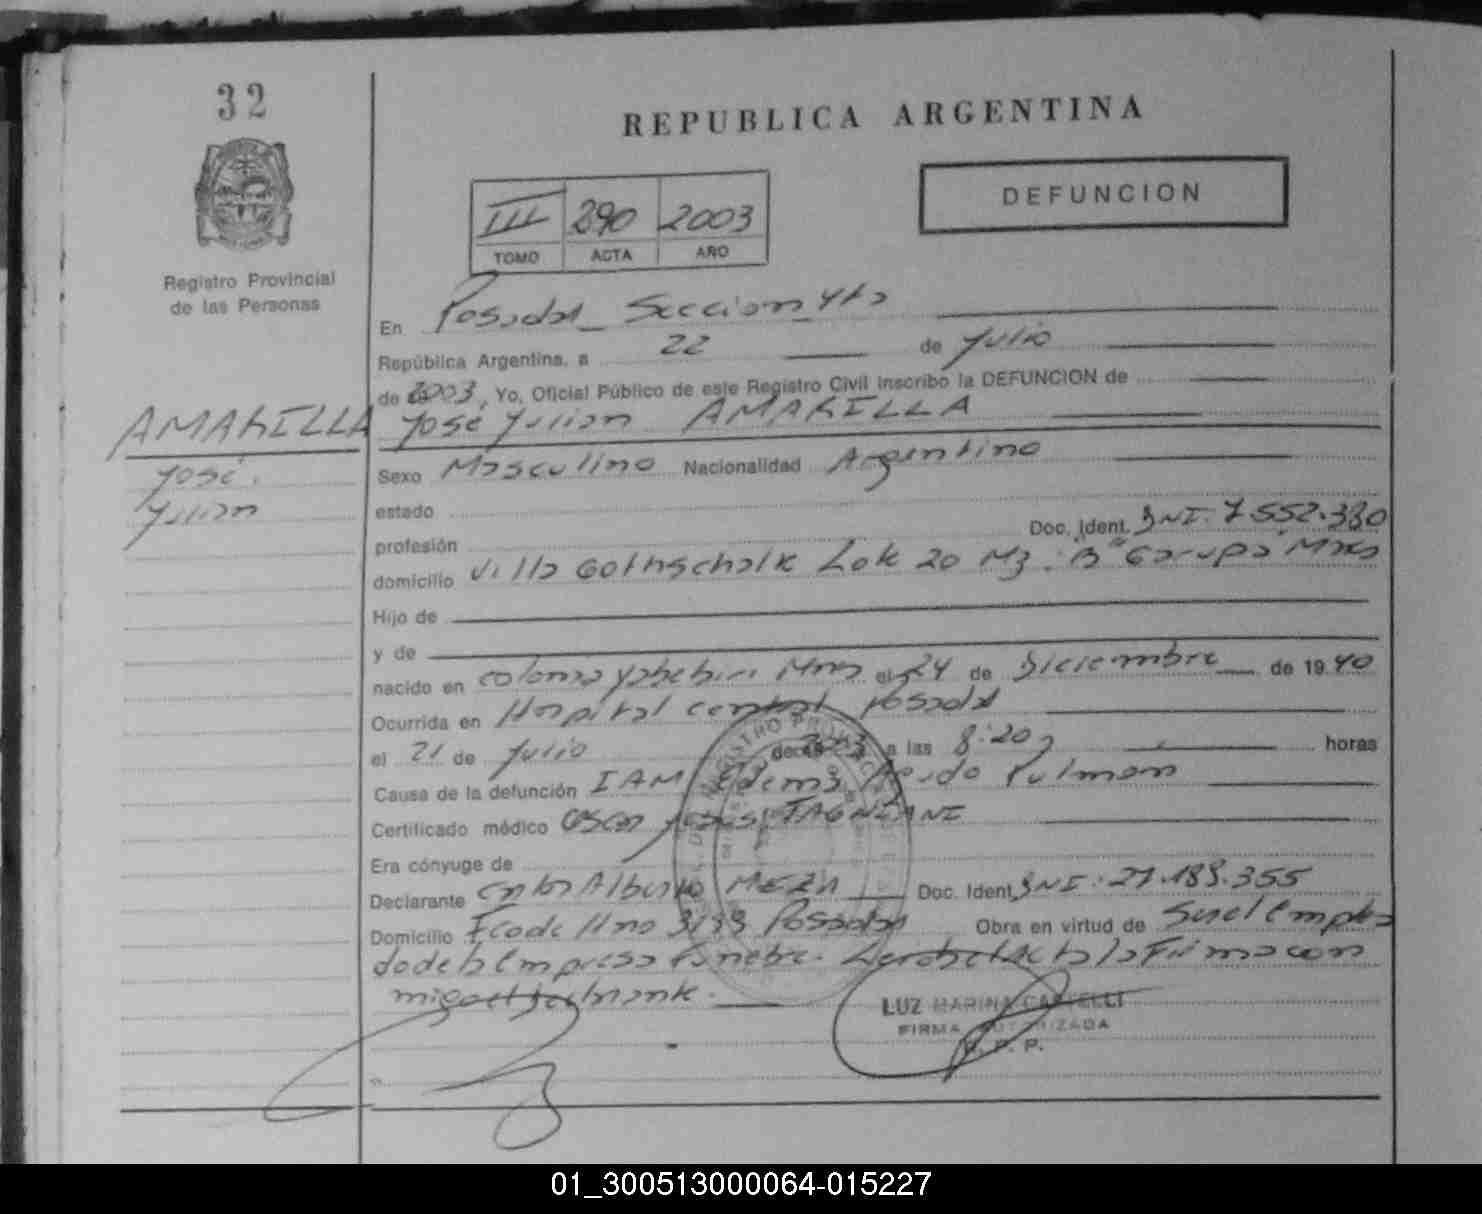 32
REPUBLICA ARGENTINA
DEFUNCION
III 290 2003
TOMO ACTA AÑO
Registro Provincial
de las Personas
En Posadas Sección 4ta
República Argentina, a 22 de Julio
de 2003, Yo, Oficial Público de este Registro Civil inscribo la DEFUNCION de
AMARILLA José Julian AMARILLA
José
Julian
Sexo Masculino Nacionalidad Argentino
estado
Doc. Ident. DNI. 7.552.330
profesión
domicilio Villa Gothschalk Lote 20 Mz. "B" Garupá Mnes
Hijo de
y de
nacido en Colonia Yabebiri Mnes el 24 de Diciembre de 1940
Ocurrida en Hospital central Posadas
el 21 de Julio de 2003 a las 8:20 horas
Causa de la defunción IAM Edema Agudo Pulmon
Certificado médico Oscar Jesus
Era cónyuge de
Declarante Carlos Alberto MEZA Doc. Ident. DNI. 27.189.355
Domicilio 3133 Posadas Obra en virtud de Ser el Emplea
do de la Empresa Funebre. Leida el Acta la Firma con
migo
LUZ MARINA CASTELLI
FIRMA AUTORIZADA
R. P. P.
01_300513000064-015227